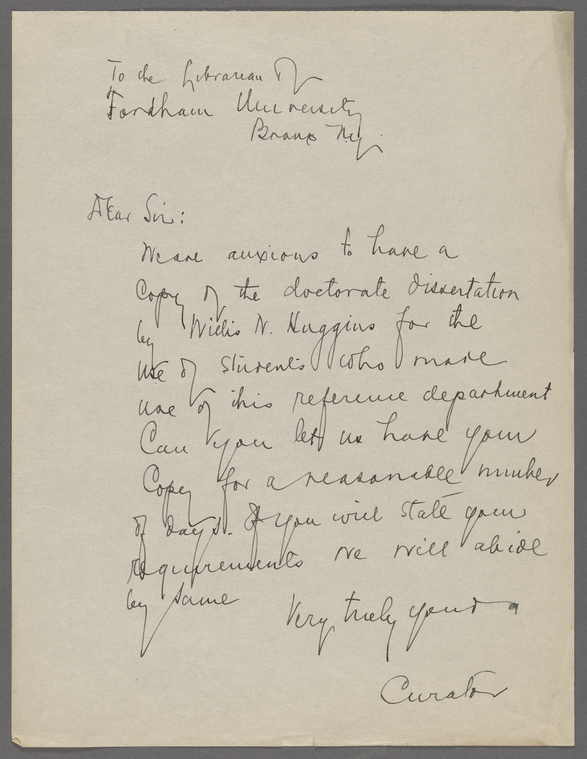 To the Librarian of
Fordham University
Bronx N.Y.
Dear Sir:
We are anxious to have a
Copy of the doctorate dissertation
by Willis N. Huggins for the
use of students who made
use of this reference department
Can you let us have your
Copy for a reasonable number
of days. If you will state your
requirements we will abide
by same
Very truly yours
Curator